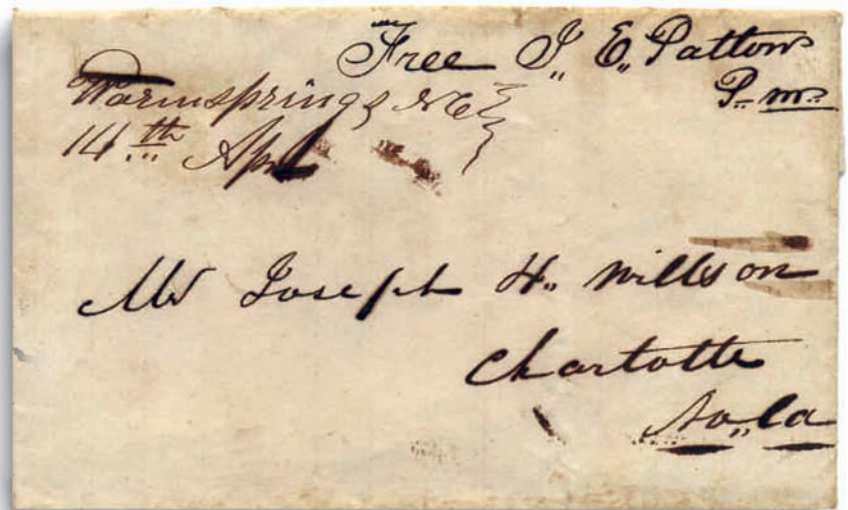 Free J. E. Patton
P. m.
Warmsprings NC
14th Apr
Mr Joseph H. Willson
Charlotte
No, Ca